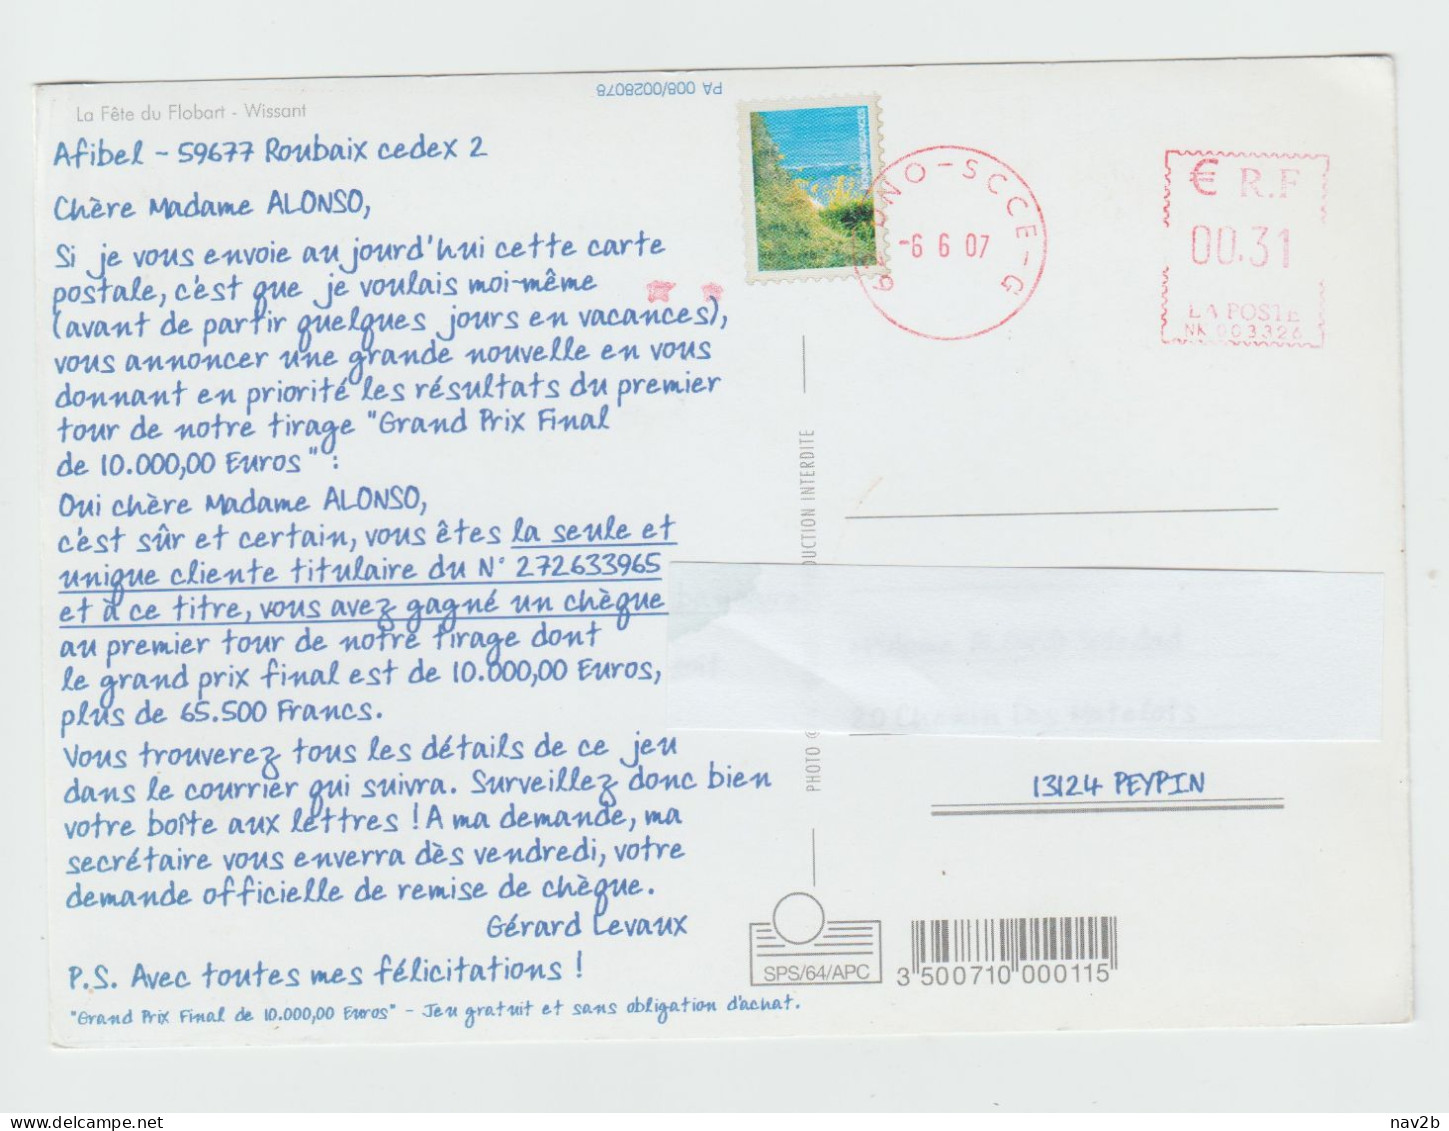 La Fête du Flobart - Wissant
PA 008/0028078
Afibel - 59677 Roubaix cedex 2
Chère Madame ALONSO,
Si je vous envoie aujourd'hui cette carte
postale, c'est que je voulais moi-même
(avant de partir quelques jours en vacances),
vous annoncer une grande nouvelle en vous
donnant en priorité les résultats du premier
tour de notre tirage "Grand Prix Final
de 10.000,00 Euros" :
Oui chère Madame ALONSO,
c'est sûr et certain, vous êtes la seule et
unique cliente titulaire du N° 272633965
et à ce titre, vous avez gagné un chèque
au premier tour de notre tirage dont
le grand prix final est de 10.000,00 Euros,
plus de 65.500 Francs.
Vous trouverez tous les détails de ce jeu
dans le courrier qui suivra. Surveillez donc bien
votre boîte aux lettres ! A ma demande, ma
secrétaire vous enverra dès vendredi, votre
demande officielle de remise de chèque.
Gérard Levaux
P.S. Avec toutes mes félicitations !
"Grand Prix Final de 10.000,00 Euros" - Jeu gratuit et sans obligation d'achat.
VACANCES
SCCE-G
-6 6 07
€ R.F
00.31
LA POSTE
NK 003326
PHOTO @
INTERDITE
13124 PEYPIN
SPS/64/APC
3 500710 000115
nav2b